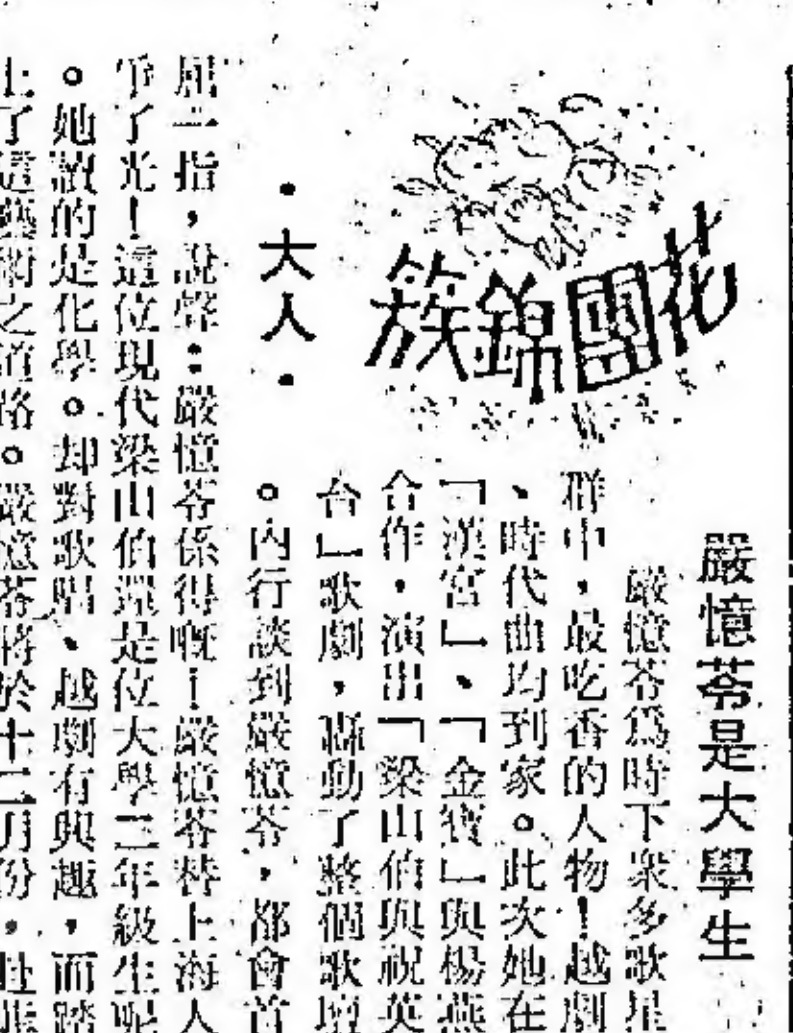 花團錦簇
・大人・
嚴憶苓是大學生
嚴憶苓為時下衆多歌星
群中，最吃香的人物！越劇
、時代曲均到家。此次她在
「漢宮」、「金寶」與楊燕
合作，演出「梁山伯與祝英
台」歌劇，轟動了整個歌壇
。內行談到嚴憶苓，都會首
屈一指，說聲：嚴憶苓係得嘅！嚴憶苓替上海人
爭了光！這位現代梁山伯還是位大學三年級生呢
。她讀的是化學。却對歌唱、越劇有興趣，而踏
上了這藝術之道路。嚴憶苓將於十二月份，赴